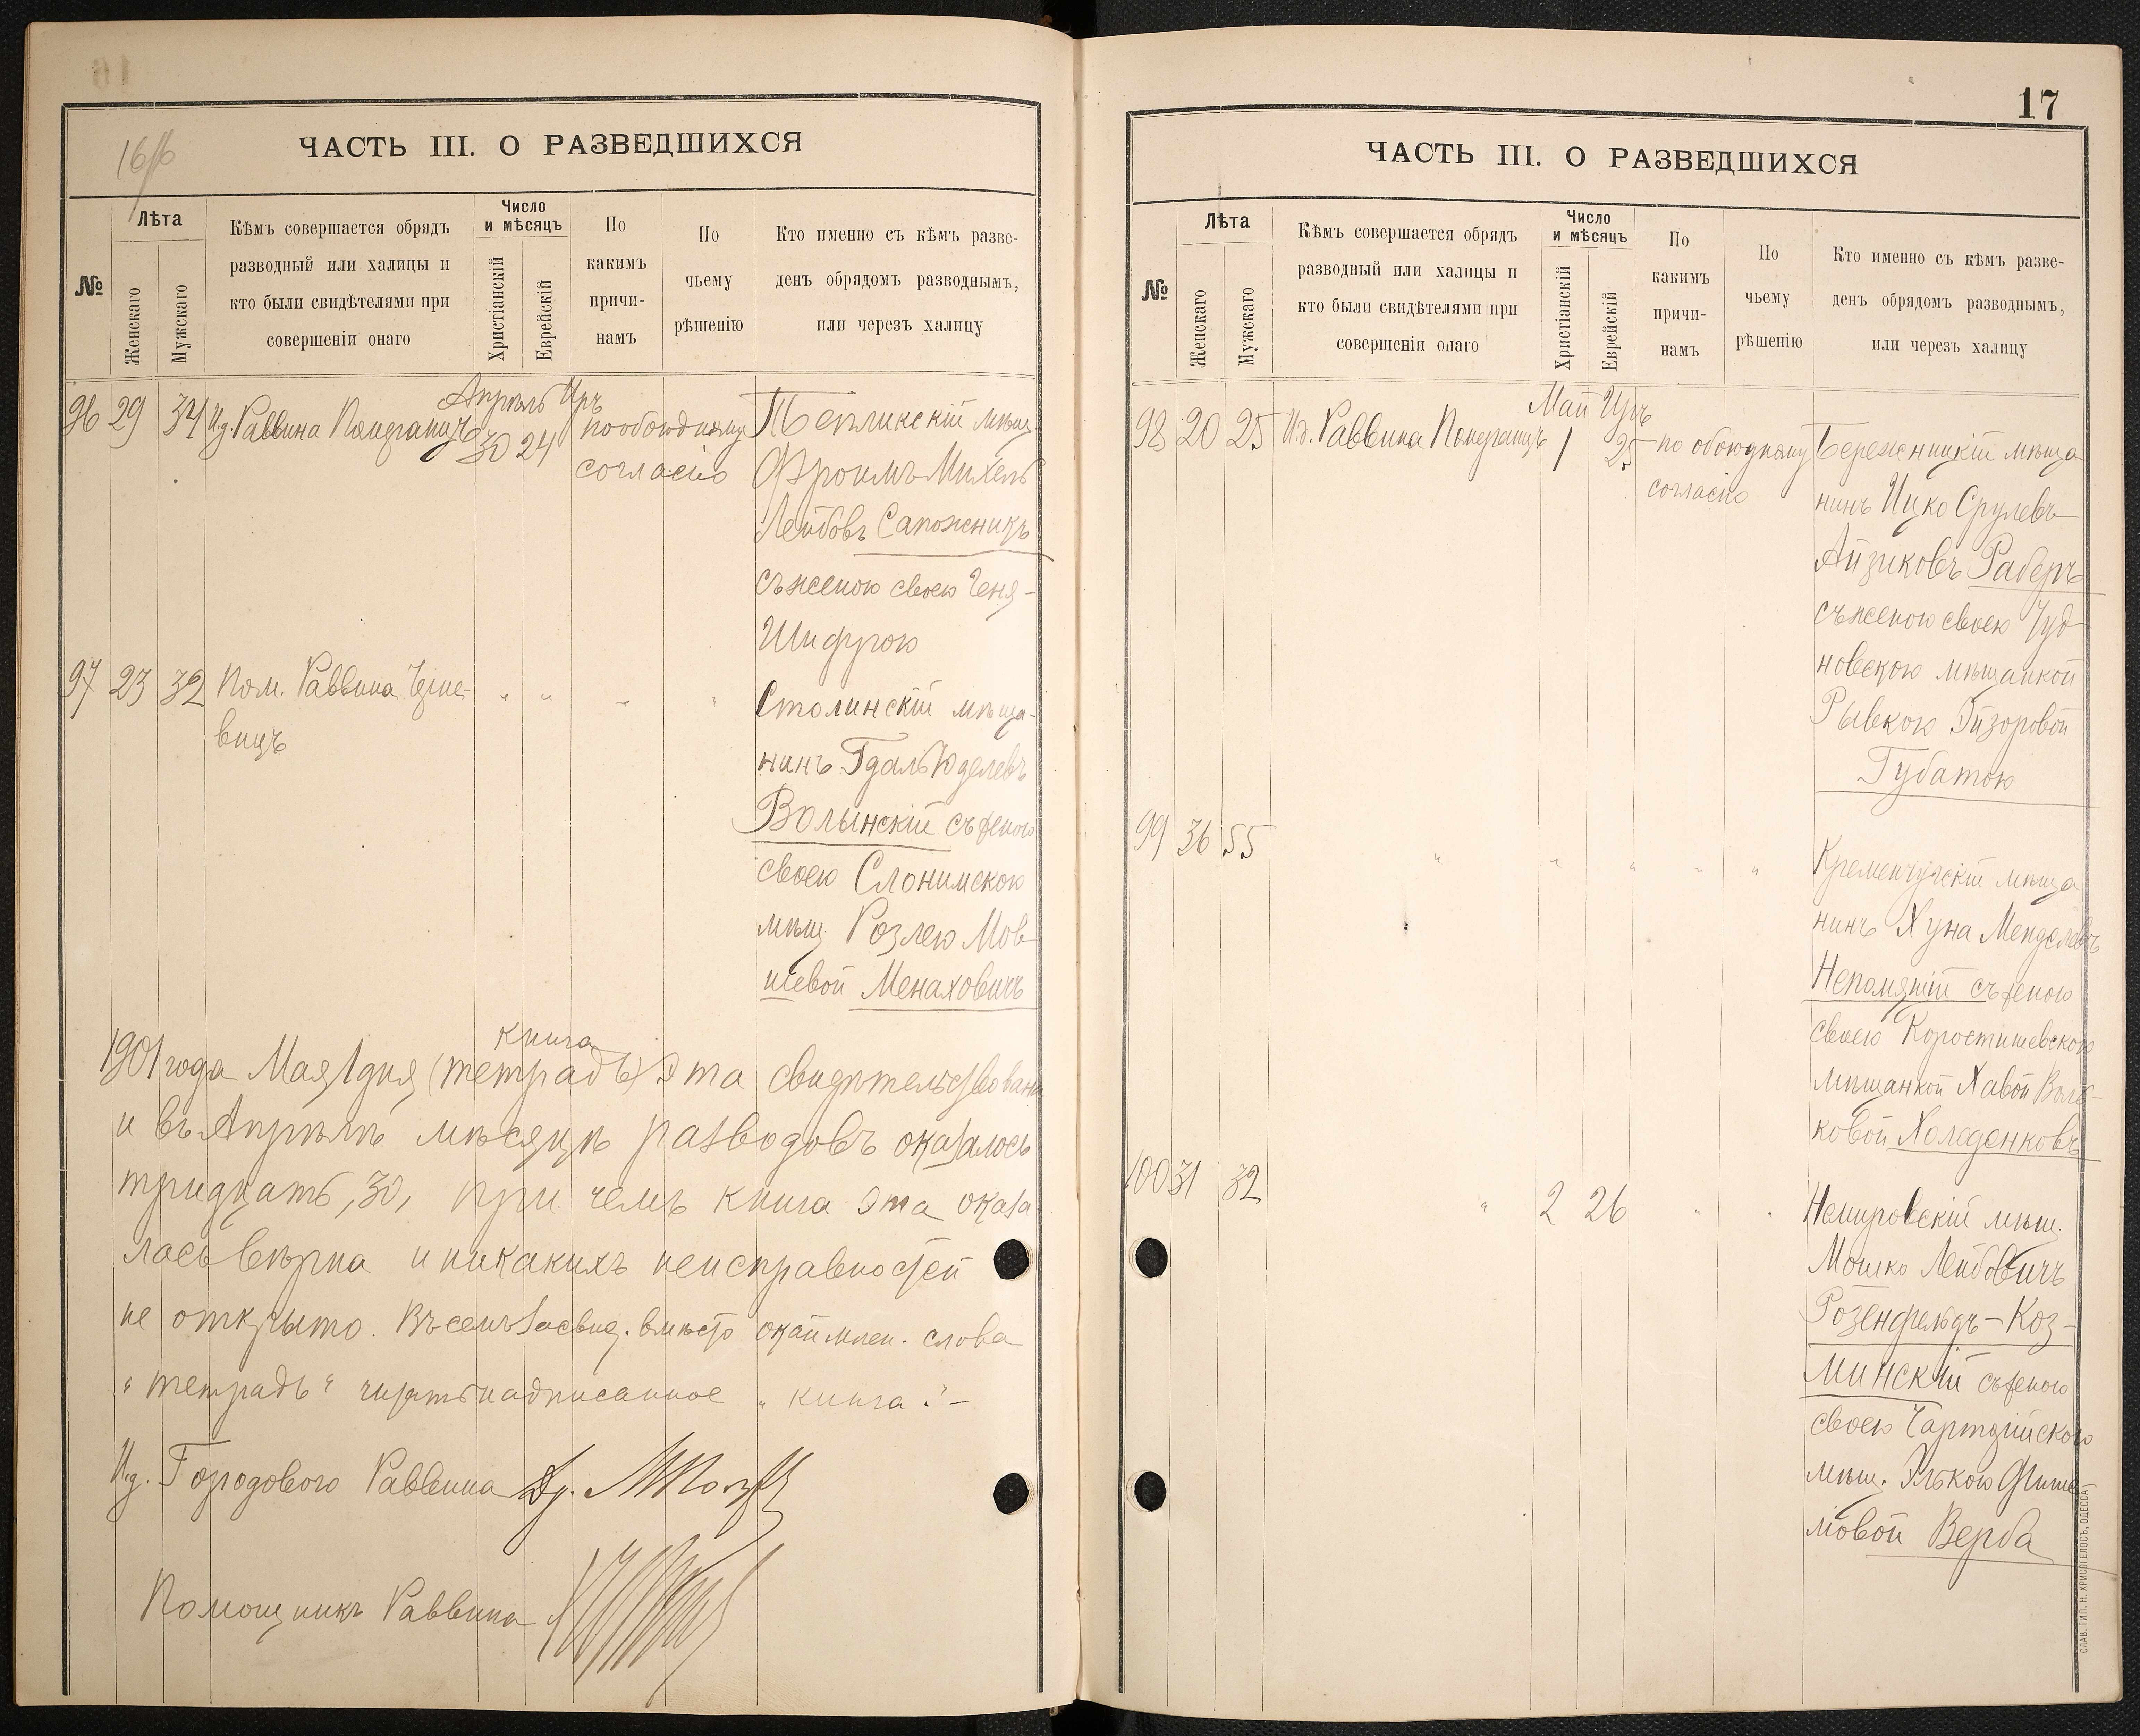 16/б
ЧАСТЬ III. О РАЗВЕДШИХСЯ
№
Лѣта
Женскаго
Мужскаго
Кѣмъ совершается обрядъ
разводный или халицы и
кто были свидѣтелями при
совершеніи онаго
Число
и мѣсяцъ
Христіанскій
Еврейскій
По
какимъ
причи-
намъ
По
чьему
рѣшенію
Кто именно съ кѣмъ разве-
денъ обрядомъ разводнымъ,
или черезъ халицу
Апрѣль Иръ
96 29 34 И.д. Раввина Помранцъ 30 24 по обоюдному
согласію
Тепликскій мѣщ.
Фроимъ Михель
Лейбовъ Сапожникъ
съ женою своею Геня-
Шифрою
97 23 32 Пом. Раввина
вицъ
" " " "
Столинскій мѣща-
нинъ Гдаль Юделевъ
Волынскій съ женою
своею Слонимскою
мѣщ. Розлею Мов-
шевой Менаховичъ
книга
1901 года Мая 1 дня (тетрадь) эта свидѣтельствована
и въ Апрѣлѣ мѣсяцѣ разводовъ оказалось
тридцать, 30, при чемъ книга эта оказа
лась вѣрна и никакихъ неисправностей
не открыто. Въ семъ засвид. вмѣсто окаймлен. слова
"тетрадь" читать надписанное "книга". –
И.д. Городового Раввина Др.
Помощникъ Раввина
17
ЧАСТЬ III. О РАЗВЕДШИХСЯ
№
Лѣта
Женскаго
Мужскаго
Кѣмъ совершается обрядъ
разводный или халицы и
кто были свидѣтелями при
совершеніи онаго
Число
и мѣсяцъ
Христіанскій
Еврейскій
По
какимъ
причи-
намъ
По
чьему
рѣшенію
Кто именно съ кѣмъ разве-
денъ обрядомъ разводнымъ,
или черезъ халицу
Май Иръ
98 20 25 И.д. Раввина Помранцъ 1 25 по обоюдному
согласію
Бережницкій мѣща
нинъ Ицко Срулевъ
Айзиковъ Раберъ
съ женою своею Чуд-
новскою мѣщанкой
Рывкою Эйзоровой
Губатою
99 36 55 " " " " "
Кременчугскій мѣща
нинъ Хуна Менделевъ
Непомящій съ женою
своею Коростишевскою
мѣщанкой Хавой Воль-
ковой Холоденковъ
100 31 32 " 2 26 " "
Немировскій мѣщ.
Мошко Лейбовичъ
Розенфельдъ-Коз-
минскій съ женою
своею Чарторійскою
мѣщ. Элькою
мовой Верба
СЛАВ. ТИП. Н. ХРИСОГЕЛОСЪ, ОДЕССА)